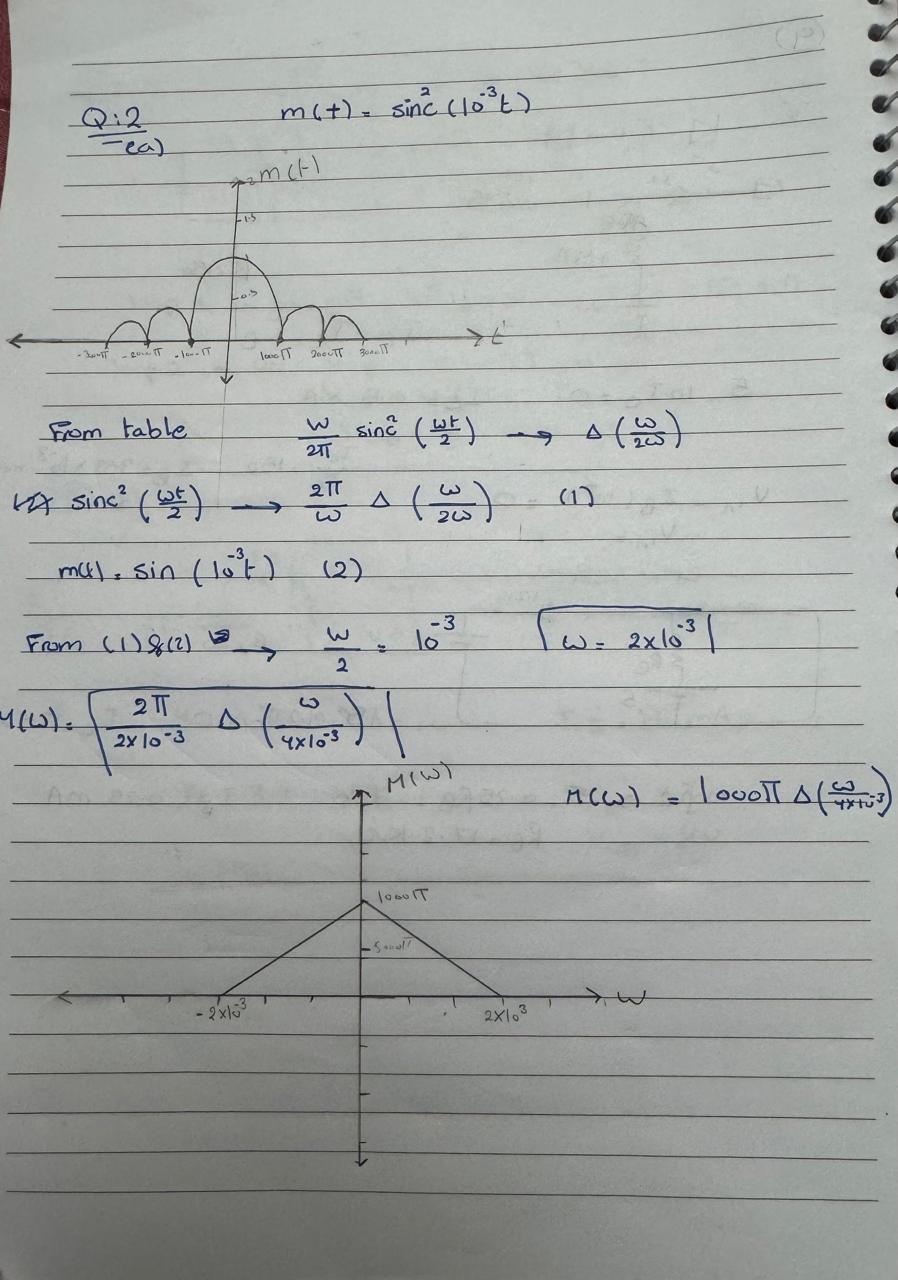 Q:2 m(t) = sinc²(10⁻³t)
(a)
m(t)
2
1.5
1
0.5
t
-3000π -2000π -1000π 1000π 2000π 3000π
From table W/2π sinc² (Wt/2) → Δ (ω/2ω)
sinc² (Wt/2) → 2π/ω Δ (ω/2ω) (1)
m(t) = sin (10⁻³t) (2)
From (1) & (2) → W/2 = 10⁻³ W = 2x10⁻³
M(W) = 2π/2x10⁻³ Δ (ω/4x10⁻³)
M(W)
M(W) = 1000π Δ(ω/4x10⁻³)
1000π
5000π
ω
-2x10⁻³ 2x10³